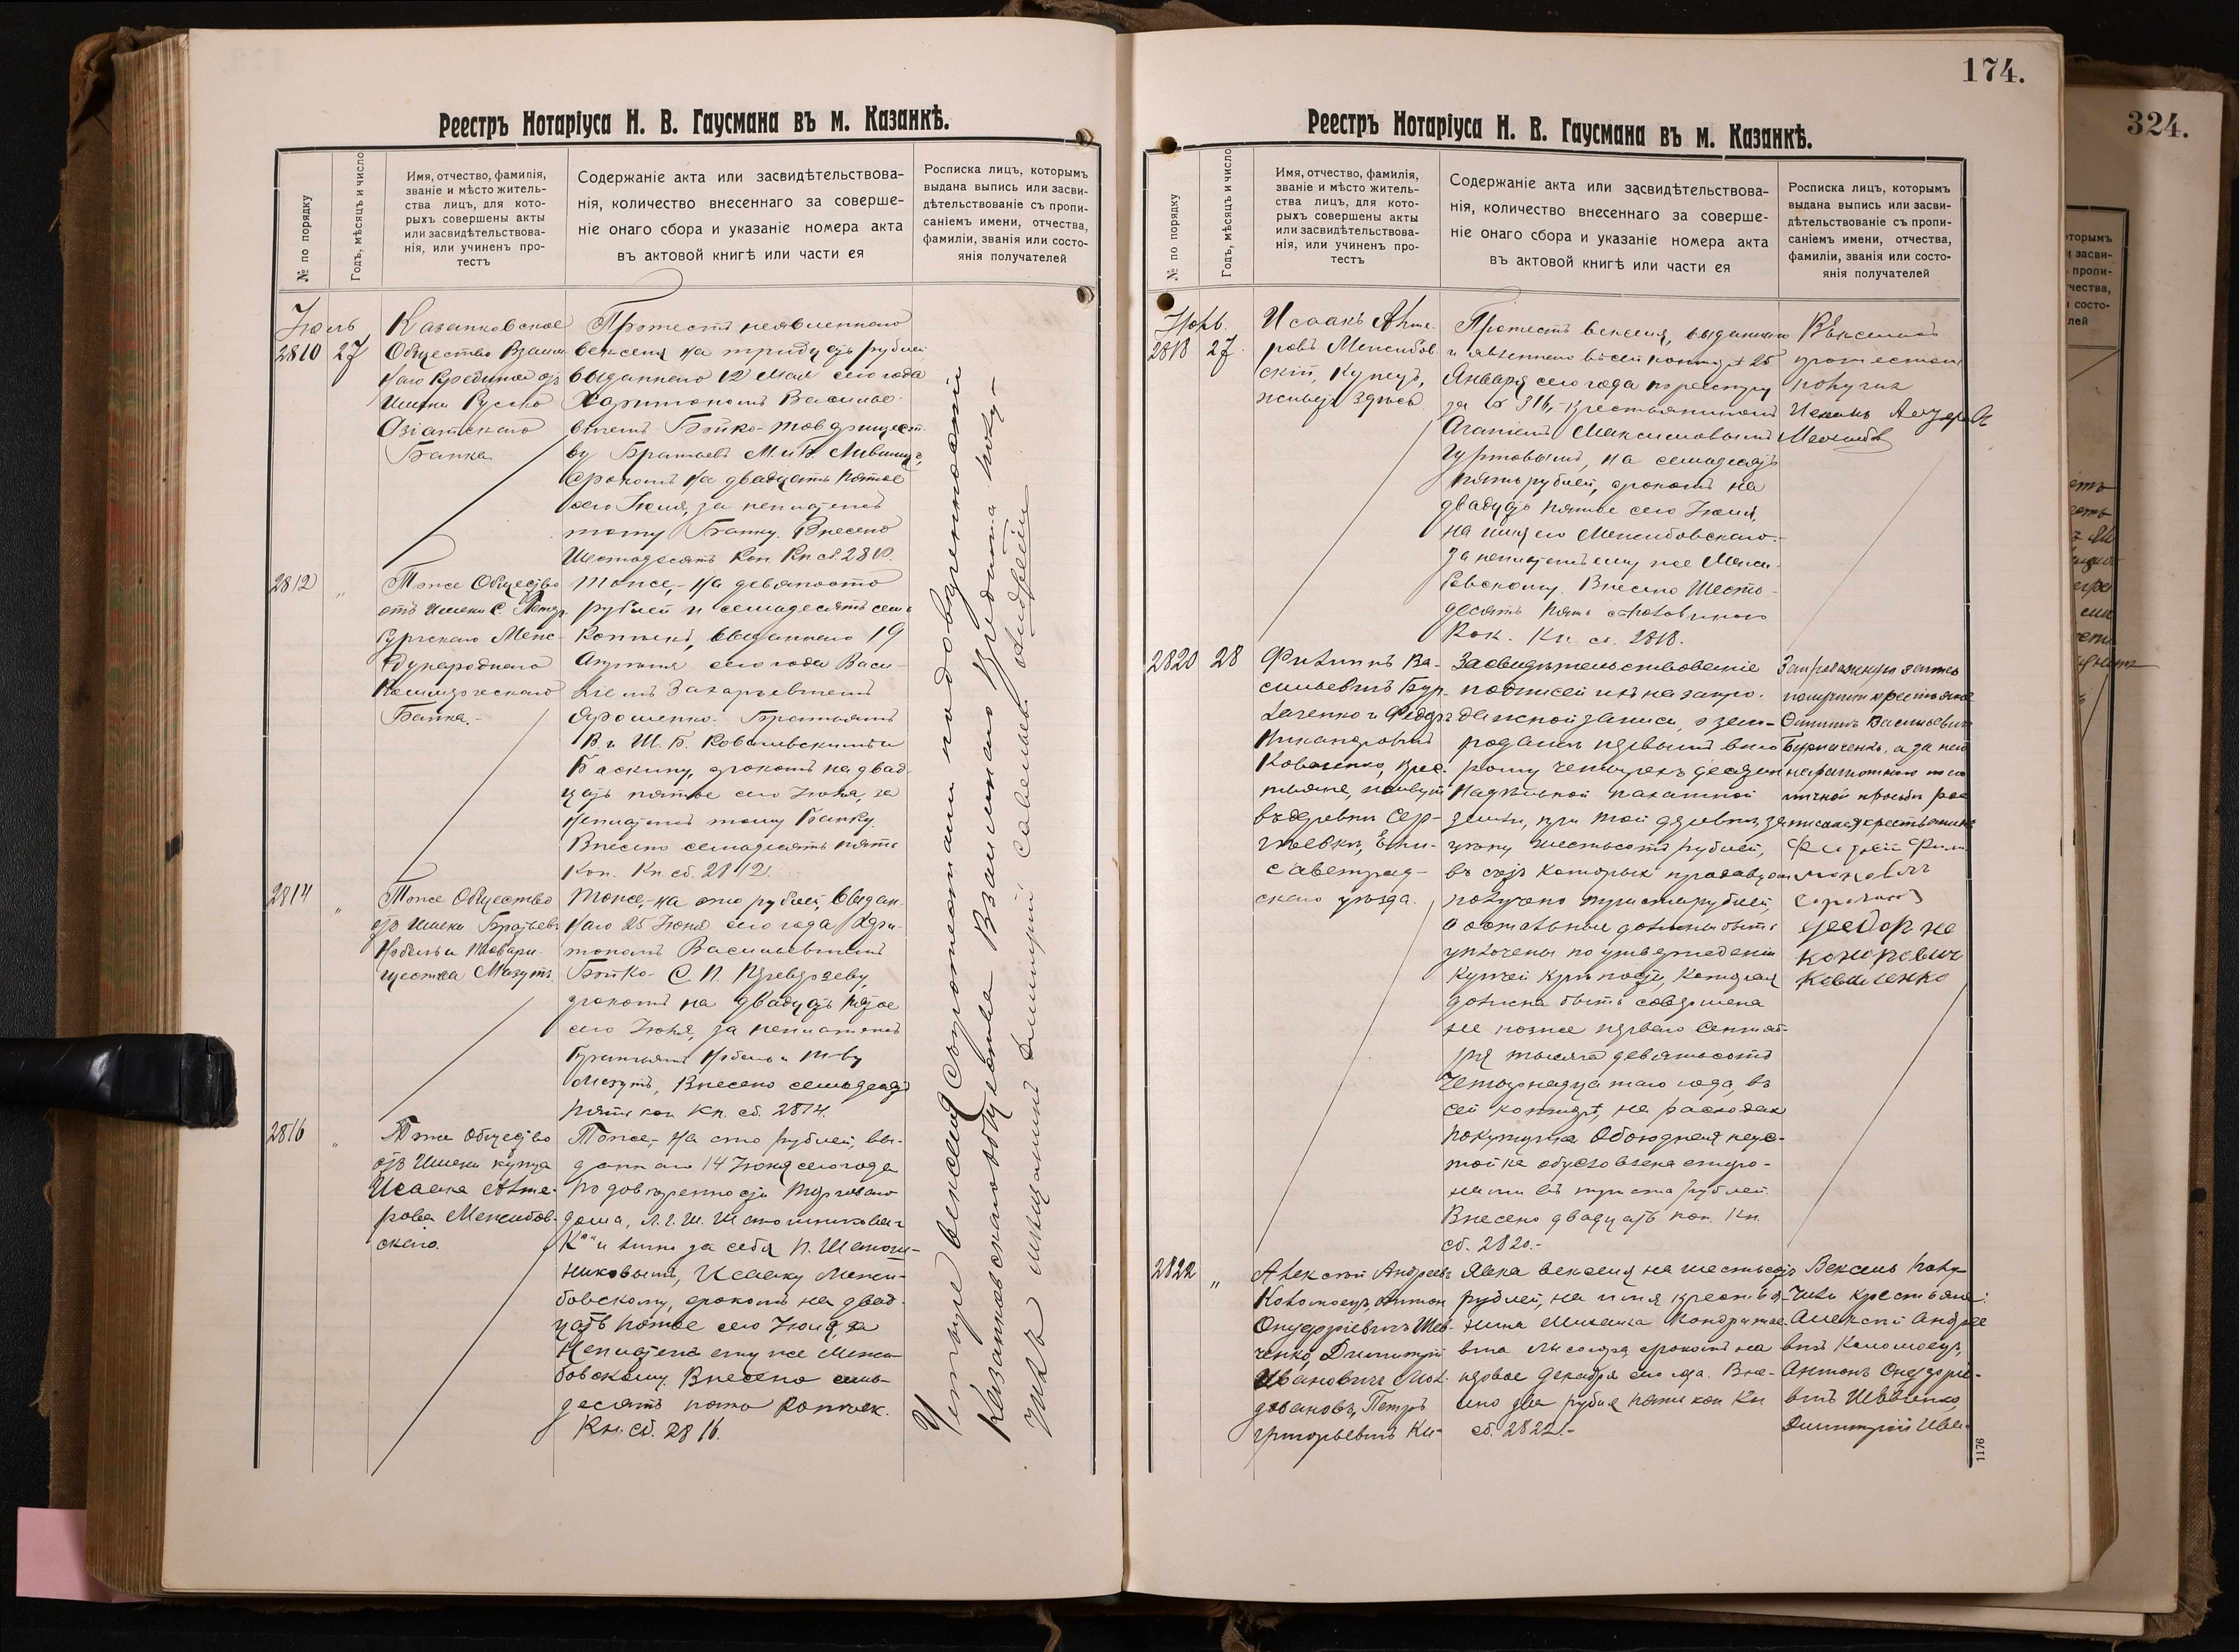 Реестръ Нотаріуса Н. В. Гаусмана въ м. Казанкѣ.
№ по порядку
Годъ, мѣсяцъ и число
Имя, отчество, фамилія,
званіе и мѣсто житель-
ства лицъ, для кото-
рыхъ совершены акты
или засвидѣтельствова-
нія, или учиненъ про-
тестъ
Содержаніе акта или засвидѣтельствова-
нія, количество внесеннаго за соверше-
ніе онаго сбора и указаніе номера акта
въ актовой книгѣ или части ея
Росписка лицъ, которымъ
выдана выпись или засви-
дѣтельствованіе съ пропи-
саніемъ имени, отчества,
фамиліи, званія или состо-
янія получателей
Іюль
2810 27
Казанковское
Общество Взаим
наго Кредита отъ
Имени Русско
Азіатскаго
Банка
Протестъ неявленнаго
векселя на тридцать рублей
выданнаго 12 Мая сего года
Харитономъ Василье-
вичемъ Бойко товарищест-
ву Братьевъ М. и Б. Лившицъ,
срокомъ на двадцать пятое
сего Іюля, за неплатежъ
тому Банку. Внесено
Шестьдесятъ Коп. Кн сб. 2810.
2812 "
Тоже Общество
отъ Имени С. Петер
бургскаго Меж-
дународнаго
Коммерческаго
Банка.-
Тоже,- на девяносто
рублей и семьдесятъ семь
копѣекъ, выданнаго 19
Апрѣля сего года Васи-
ліемъ Захарьевичемъ
Ярошенко Братьямъ
В. и Ш. Б. Ковалевскимъ и
Баскину, срокомъ на двад-
цать пятое сего Іюля, за
неплатежъ тому Банку.
Внесено семьдесятъ пять
Коп. Кн. сб. 2812.
2814 "
Тоже Общество
отъ Имени Братьевъ
Нобель и Товари-
щества Мазутъ
Тоже,- на сто рублей, выдан-
наго 25 Іюня сего года Хари-
тономъ Васильевичемъ
Бойко С. П.
срокомъ на двадцать пятое
сего Іюля, за неплатежъ
братьямъ Нобель и Т-ву
Мазутъ, Внесено семьдесятъ
пять коп. Кн. сб. 2814.
2816 "
Тоже Общество
отъ Имени купца
Исаака Анше-
рова Межибов-
скаго.
Тоже,- на сто рублей, вы-
даннаго 14 Іюня сего года
по довѣренности торговаго
дома, Л. Г. Ш. Шапошникова и
К° и лично за себя П. Шапош-
никовымъ, Исааку Межи-
бовскому, срокомъ на двад-
цать пятое сего Іюля, за
неплатежъ ему же Межи-
бовскому. Внесено семь-
десятъ пять копѣек.
Кн. сб. 2816.
Четыре векселя съ протестами по довѣренности
Казанковскаго Общества Взаимнаго Кредита полу-
чилъ мѣщанинъ Дмитрій Савельевъ Андреевъ
174.
Реестръ Нотаріуса Н. В. Гаусмана въ м. Казанкѣ.
№ по порядку
Годъ, мѣсяцъ и число
Имя, отчество, фамилія,
званіе и мѣсто житель-
ства лицъ, для кото-
рыхъ совершены акты
или засвидѣтельствова-
нія, или учиненъ про-
тестъ
Содержаніе акта или засвидѣтельствова-
нія, количество внесеннаго за соверше-
ніе онаго сбора и указаніе номера акта
въ актовой книгѣ или части ея
Росписка лицъ, которымъ
выдана выпись или засви-
дѣтельствованіе съ пропи-
саніемъ имени, отчества,
фамиліи, званія или состо-
янія получателей
Іюль.
2818 27
Исаакъ Анше-
ровъ Межибов-
скій, Купецъ,
живетъ здѣсь
Протестъ векселя, выданнаго
и явленнаго въ сей конторѣ 25
Января сего года по реестру
за № 316,- крестьяниномъ
Максимовымъ
Гуртовымъ, на семьдесятъ
пять рублей, срокомъ на
двадцать пятое сего Іюля,
на имя его Межибовскаго.
за неплатежъ ему же Межи-
бовскому. Внесено Шесть-
десятъ пять съ половиною
Коп. Кн. сб. 2818.
Вексель съ
протестомъ
получилъ
Исаакъ
2820 28
Филиппъ Ва-
сильевичъ Бур-
лаченко и Федоръ
Никаноровичъ
Коваленко, крес-
тьяне, живутъ
въ деревнѣ Сер-
гѣевкѣ, Ели-
саветград-
скаго уѣзда.
Засвидѣтельствованіе
подписей ихъ на запро-
дажной записи, о
первымъ вто-
рому четырехъ десятин
надѣльной пахатной
земли, при той деревнѣ, за
цѣну шестьсотъ рублей,
въ счетъ которыхъ продавцомъ
получено триста рублей,
а остальные должны быть
уплочены по утвержденіи
купчей крѣпости, которая
должна быть совершена
не позже перваго Сентяб-
ря тысяча девятьсотъ
четырнадцатаго года, въ
сей конторѣ, на расходах
покупщика Обоюдная неус-
тойка обусловлена сторо-
нами въ триста рублей.
Внесено двадцать коп. Кн.
сб. 2820.-
Запродажную запись
получили крестьяне
Филиппъ Васильевичъ
Бурлаченко, а за него
неграмотнаго по его
личной просьбѣ рос-
писался крестьянинъ
федор не
конорович
Коваленко
2822 "
Алексѣй Андреевъ
Коломоецъ, Антонъ
Онуфріевичъ Шев-
ченко, Димитрій
Ивановичъ
Петръ
Григорьевичъ Ки-
Явка векселя на шестьсотъ
рублей, на имя крестья-
нина Михаила Кондратье-
вича срокомъ на
первое Декабря сего года. Вне-
сено два рубля пять коп Кн
сб. 2822.-
Вексель полу-
чили крестьяне:
Алексѣй Андрее
вичъ Коломоецъ,
Антонъ Онуфріе-
вичъ Шевченко,
Димитрій Ива-
1176
324.